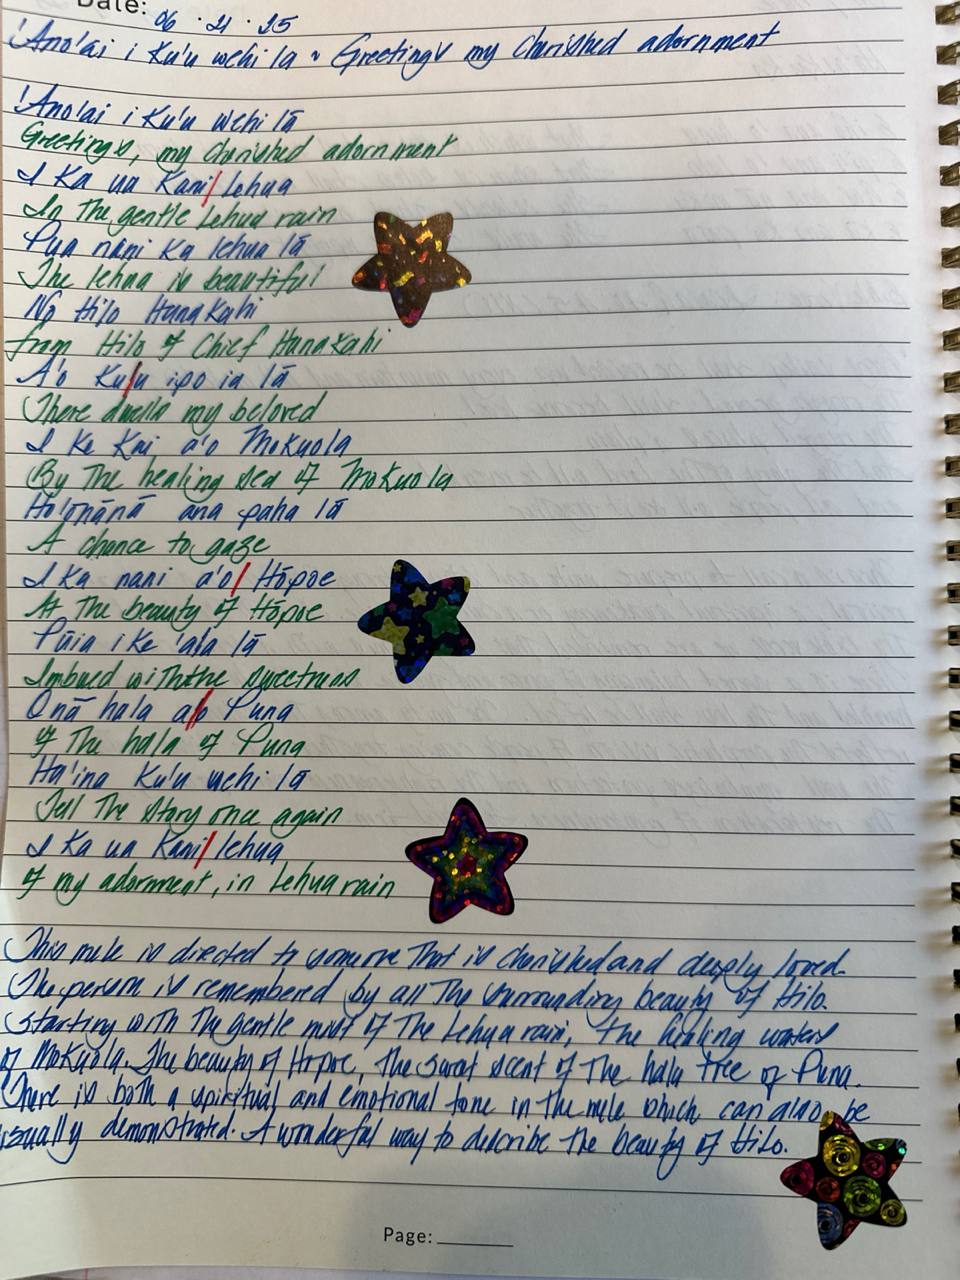 Date: 06 · 21 · 25
'Ano'ai i Ku'u wehi la ~ Greetings my cherished adornment
'Ano'ai i Ku'u wehi lā
Greetings, my cherished adornment
I Ka ua Kani/Lehua
In The gentle Lehua rain
Pua nani Ka lehua lā
The lehua is beautiful
No Hilo HanaKahi
from Hilo of Chief HanaKahi
A'o Ku/u ipo ia lā
There dwells my beloved
I Ke Kai a'o MoKuola
By The healing sea of MoKuola
Ho'onānā ana paha lā
A chance to gaze
I Ka nani a'o/Hōpoe
At The beauty of Hōpoe
Pūia i Ke 'ala lā
Imbued with the sweetness
Onā hala a/o Puna
of The hala of Puna
Ha'ina Ku'u wehi lā
Tell The story once again
I Ka ua Kani/lehua
of my adornment, in Lehua rain
This mele is directed to someone That is cherished and deeply loved.
The person is remembered by all The surrounding beauty of Hilo.
Starting with The gentle mist of The Lehua rain, The healing waters
of MoKuola. The beauty of Hopoe, The sweet scent of The hala Tree of Puna.
There is both a spiritual and emotional tone in the mele which can also be
usually demonstrated. A wonderful way to describe the beauty of Hilo.
Page: